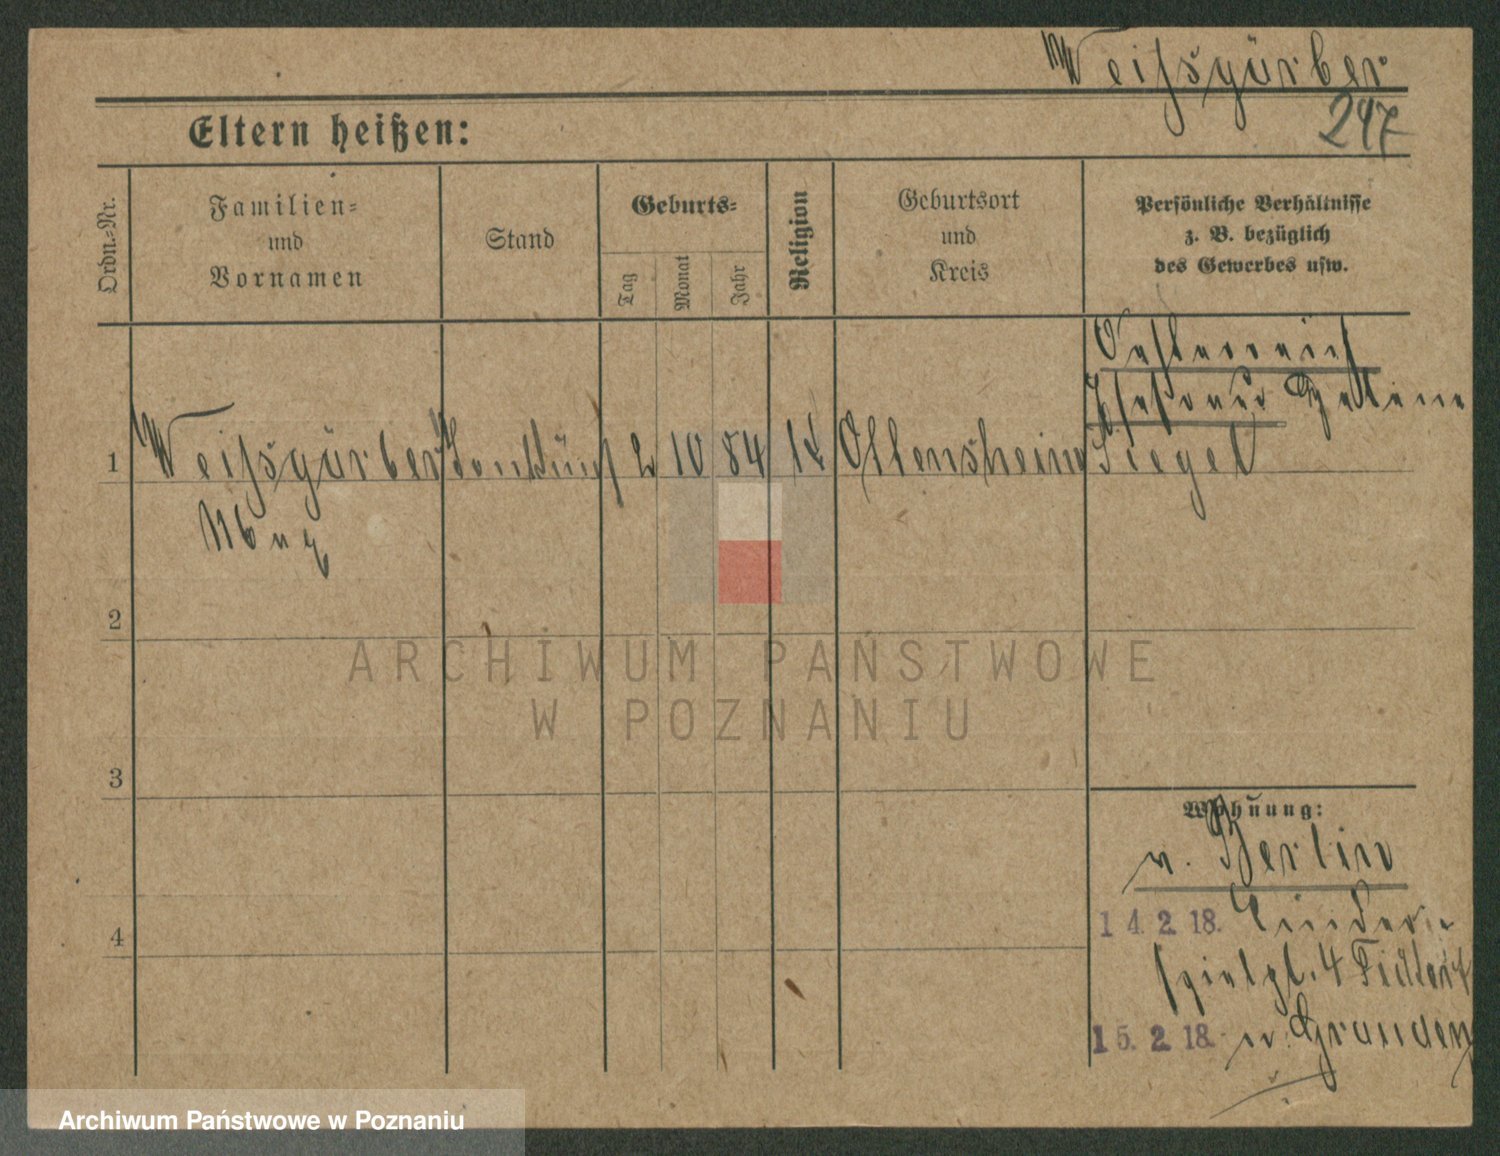 Weißgärber
247
Eltern heißen:
Ordn.-Nr.
Familien-
und
Vornamen
Stand
Geburts-
Tag
Monat
Jahr
Religion
Geburtsort
und
Kreis
Persönliche Verhältnisse
z. B. bezüglich
des Gewerbes usw.
Oesterreich
1
Weißgärber
2 10 84
k
Ottensheim
Siegel
Max
2
3
4
Wohnung:
v. Berlin
14. 2. 18.
4
15. 2. 18. n Graudenz
ARCHIWUM PAŃSTWOWE
W POZNANIU
Archiwum Państwowe w Poznaniu